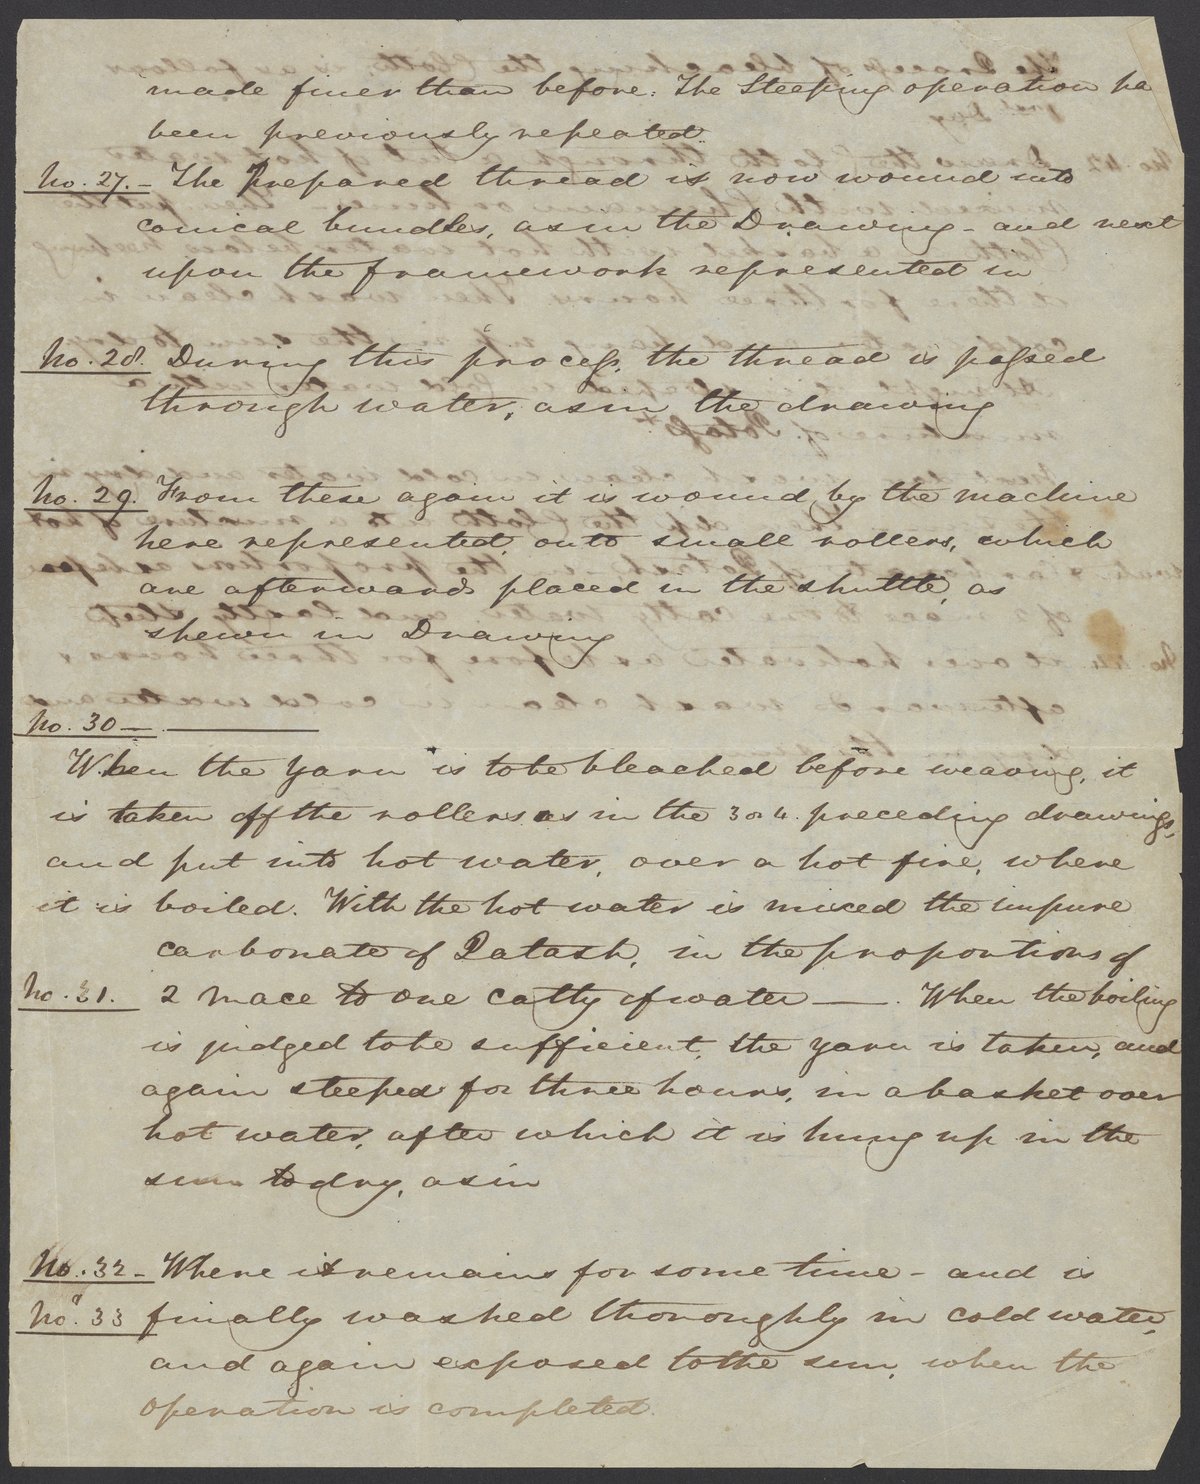 made finer than before. The Steeping operation ha
been previously repeated.
No. 27. - The Prepared thread is now wound into
conical bundles, as in the Drawing - and next
upon the framework represented in
No. 28. During this process, the thread is passed
through water, as in the drawing
No. 29. From these again it is wound by the machine
here represented, onto small rollers, which
are afterwards placed in the shuttle, as
shewn in Drawing
No. 30 —
When the yarn is to be bleached before weaving, it
is taken off the rollers as in the 3 or 4 preceding drawings,
and put into hot water, over a hot fire, where
it is boiled. With the hot water is mixed the impure
carbonate of Potash, in the proportions of
No. 31. 2 mace to one catty of water —. When the boiling
is judged to be sufficient, the yarn is taken, and
again steeped for three hours, in a basket over
hot water, after which it is hung up in the
sun to dry, as in
No. 32 - Where it remains for some time - and is
No. 33 finally washed thoroughly in cold water,
and again exposed to the sun, when the
operation is completed.